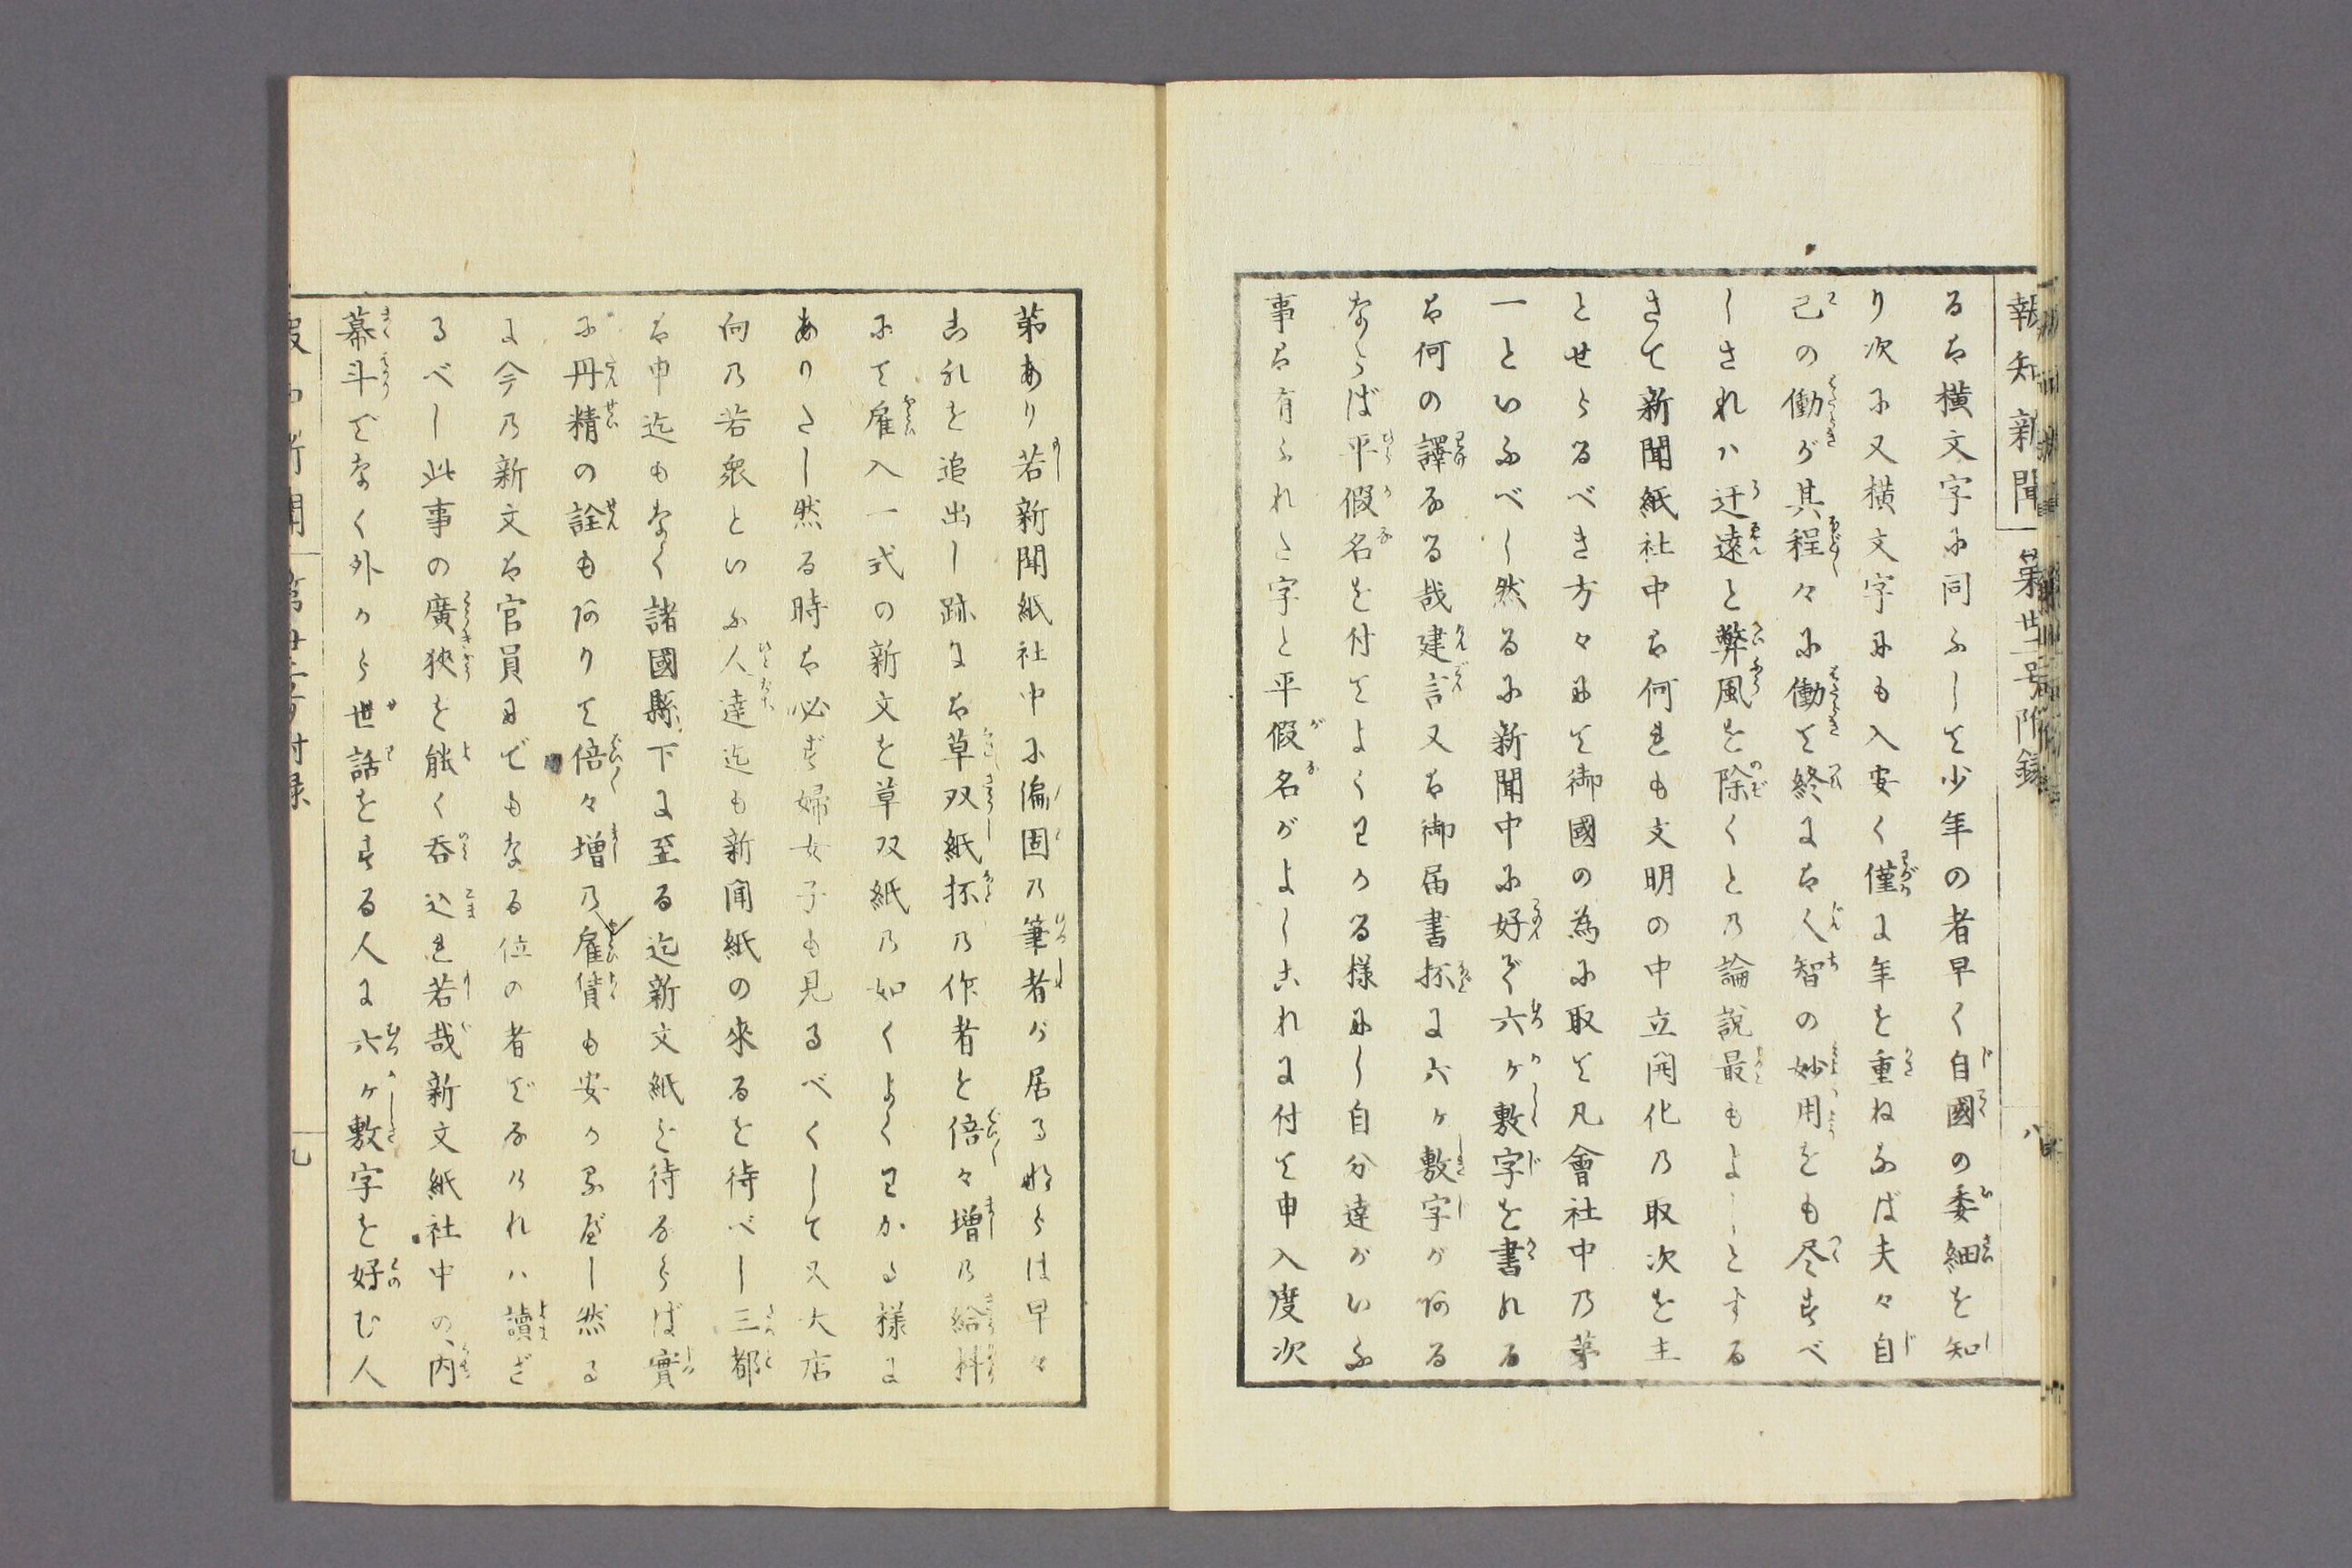 報知新聞 第廿二号附録 八
るは横文字に同ふして少年の者早く自國の委細を知
り次に又横文字にも入安く僅に年を重ねなば夫々自
己の働が其程々に働て終には人智の妙用をも尽すべ
しされハ迂遠と弊風を除くとの論説最もよしとする
さて新聞紙社中は何れも文明の中立開化の取次を主
とせらるべき方々にて御國の為に取て凡會社中の第
一といふべし然るに新聞中に好で六ヶ敷字を書れる
は何の譯なる哉建言又は御届書抔に六ヶ敷字がある
ならば平假名を付てよくわかる様にし自分達がいふ
事は有ふれた字と平假名がよしこれに付て申入度次
第あり若新聞紙社中に偏固の筆者が居るならは早々
これを追出し跡には草双紙抔の作者を倍々増の給料
にて雇入一式の新文を草双紙の如くよくわかる様に
ありたし然る時は必ず婦女子も見るべくして又大店
向の若衆といふ人達迄も新聞紙の來るを待べし三都
は申迄もなく諸國縣下に至る迄新文紙を待るならば實
に丹精の詮もありて倍々増の雇賃も安かるべし然る
に今の新文は官員にでもなる位の者でなけれハ讀ざ
るべし此事の廣狹を能く呑込れ若哉新文紙社中の内
幕斗でなく外から世話をする人に六ヶ敷字を好む人
報知新聞 第廿二号附録 九